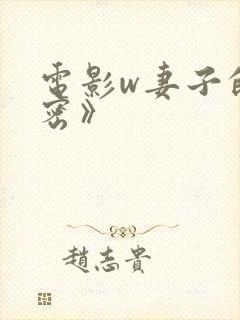 電影w妻子的
密》
趙志貴